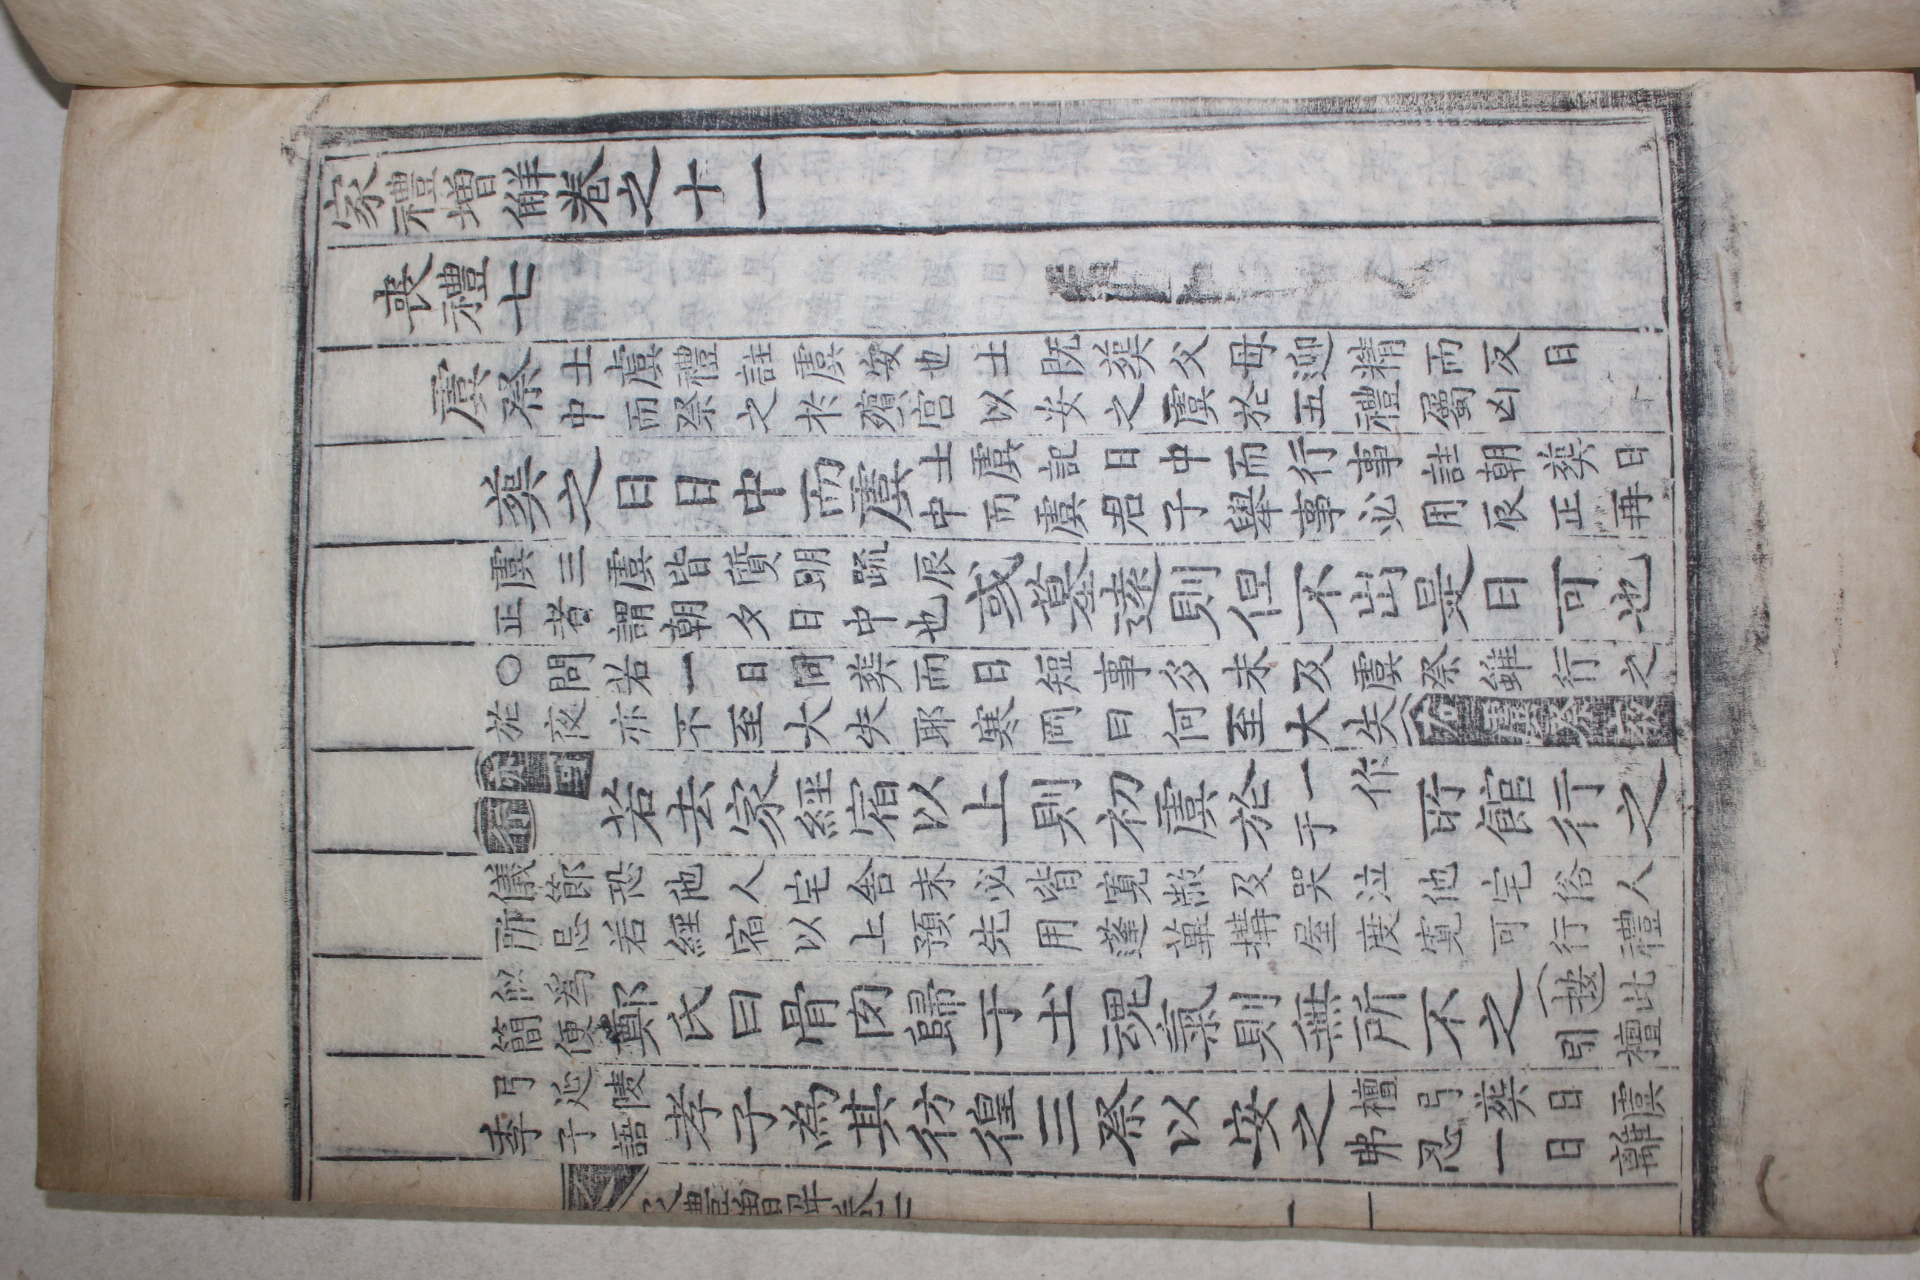 家禮增解卷之十一
喪禮七
虞祭
士虞禮註虞安也士既葬父母迎精而反日
中而祭之於殯宮以安之虞於五禮屬凶
葬之日日中而虞
士虞記日中而行事註朝葬日
中而虞君子舉事必用辰正再
虞三虞皆質明疏辰
正者謂朝夕日中也
或墓遠則但不出是日可也
○問若一日同葬而日短事多未及虞祭雖行之
於夜亦不至大失耶寒岡曰何至大失(右虞祭夜
亦可
行
若去家經宿以上則初虞於
一作
于
所館行之
儀節恐他人宅舍未必皆寬敞及哭泣他宅俗人
所忌若經宿以上預先用蓬蓽搆屋度寬可行禮
似爲
簡便
鄭氏曰骨肉歸于土魂氣則無所不之
(按此
引檀
弓延陵
季子語
孝子為其彷徨三祭以安之
檀弓葬日虞
弗忍一日離
家禮增解卷十一
一